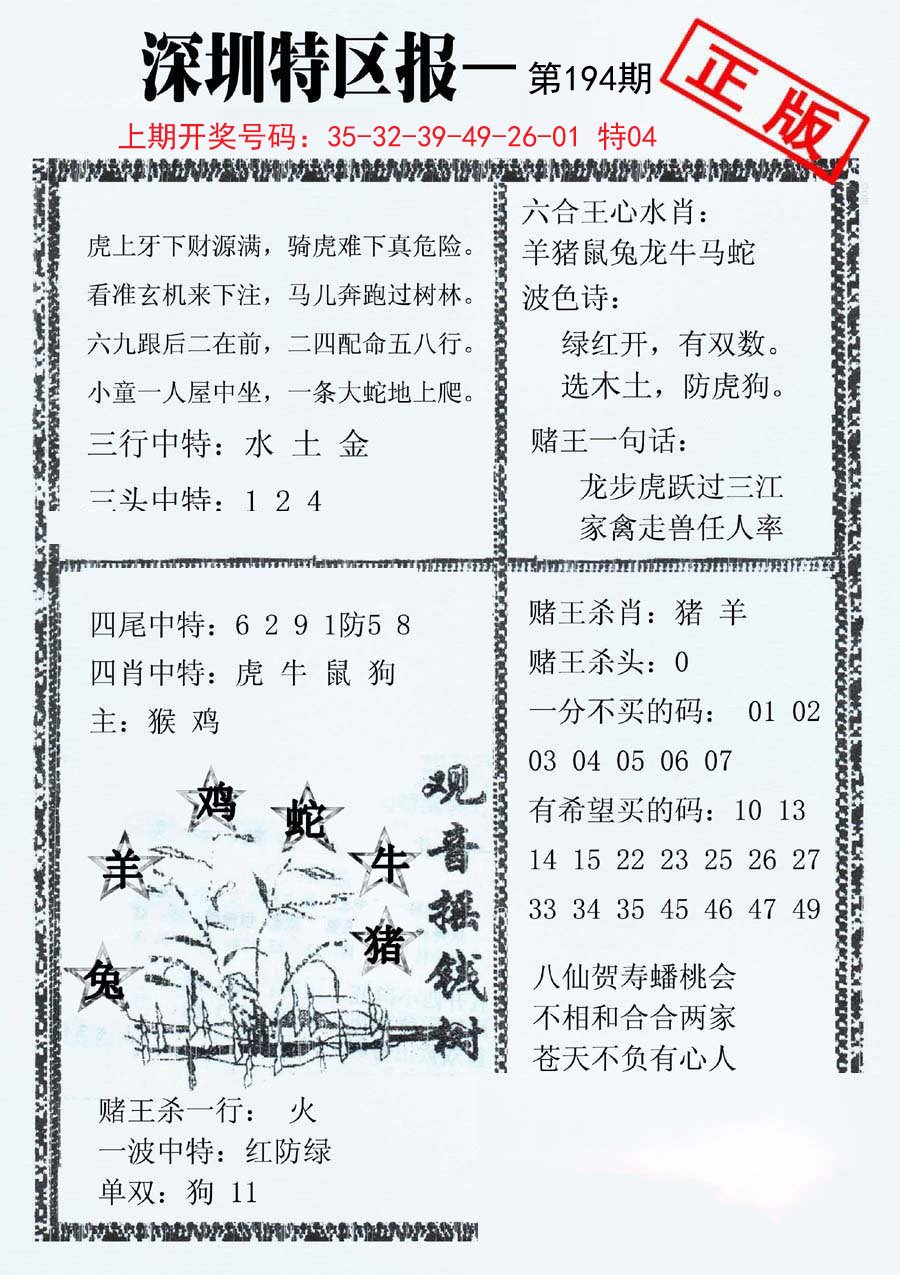 深圳特区报一 第194期
正版
上期开奖号码：35-32-39-49-26-01 特04
虎上牙下财源满，骑虎难下真危险。
看准玄机来下注，马儿奔跑过树林。
六九跟后二在前，二四配命五八行。
小童一人屋中坐，一条大蛇地上爬。
三行中特：水 土 金
三头中特：1 2 4
六合王心水肖：
羊猪鼠兔龙牛马蛇
波色诗：
绿红开，有双数。
选木土，防虎狗。
赌王一句话：
龙步虎跃过三江
家禽走兽任人率
四尾中特：6 2 9 1防5 8
四肖中特：虎 牛 鼠 狗
主：猴 鸡
鸡
蛇
羊
牛
猪
兔
观音摇钱树
赌王杀一行： 火
一波中特：红防绿
单双：狗 11
赌王杀肖：猪 羊
赌王杀头：0
一分不买的码： 01 02
03 04 05 06 07
有希望买的码：10 13
14 15 22 23 25 26 27
33 34 35 45 46 47 49
八仙贺寿蟠桃会
不相和合合两家
苍天不负有心人